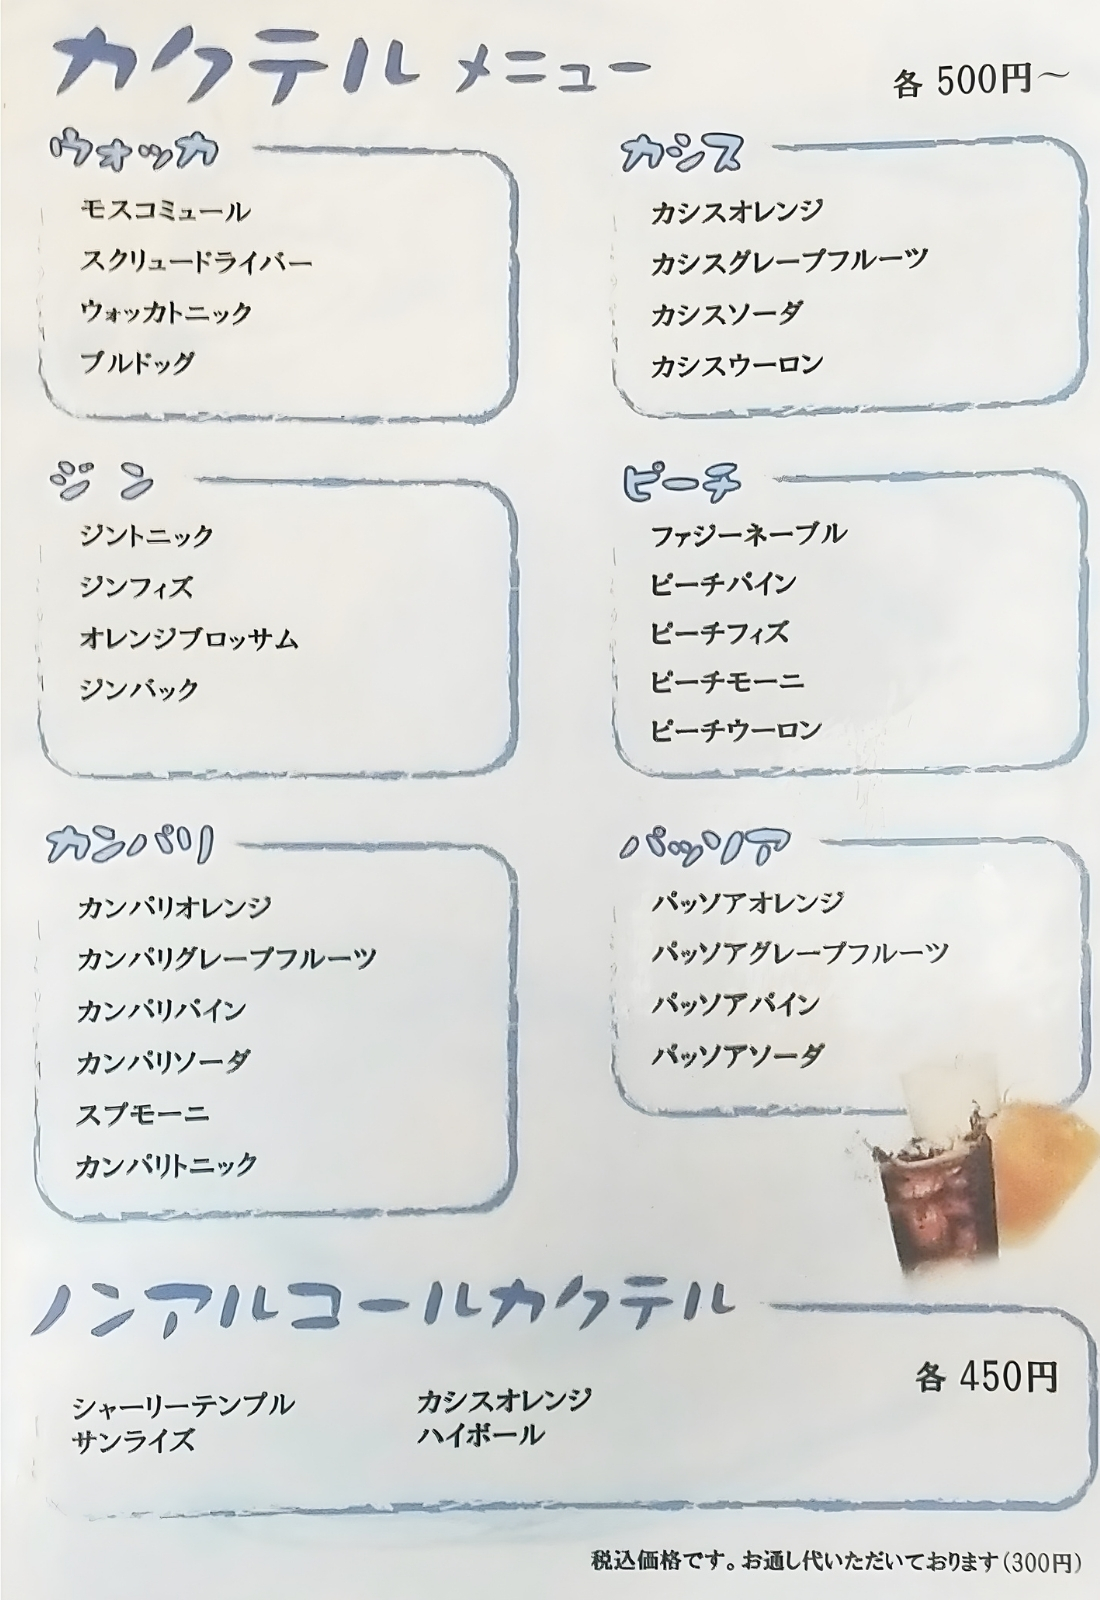 カクテル メニュー
各 500円～
ウォッカ
モスコミュール
スクリュードライバー
ウォッカトニック
ブルドッグ
カシス
カシスオレンジ
カシスグレープフルーツ
カシスソーダ
カシスウーロン
ジン
ジントニック
ジンフィズ
オレンジブロッサム
ジンバック
ピーチ
ファジーネーブル
ピーチパイン
ピーチフィズ
ピーチモーニ
ピーチウーロン
カンパリ
カンパリオレンジ
カンパリグレープフルーツ
カンパリパイン
カンパリソーダ
スプモーニ
カンパリトニック
パッソア
パッソアオレンジ
パッソアグレープフルーツ
パッソアパイン
パッソアソーダ
ノンアルコールカクテル
各 450円
シャーリーテンプル
サンライズ
カシスオレンジ
ハイボール
税込価格です。お通し代いただいております(300円)